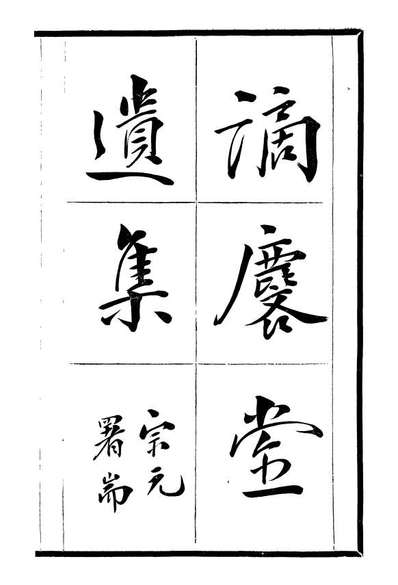 謫麐堂
遺集
宗元
署耑